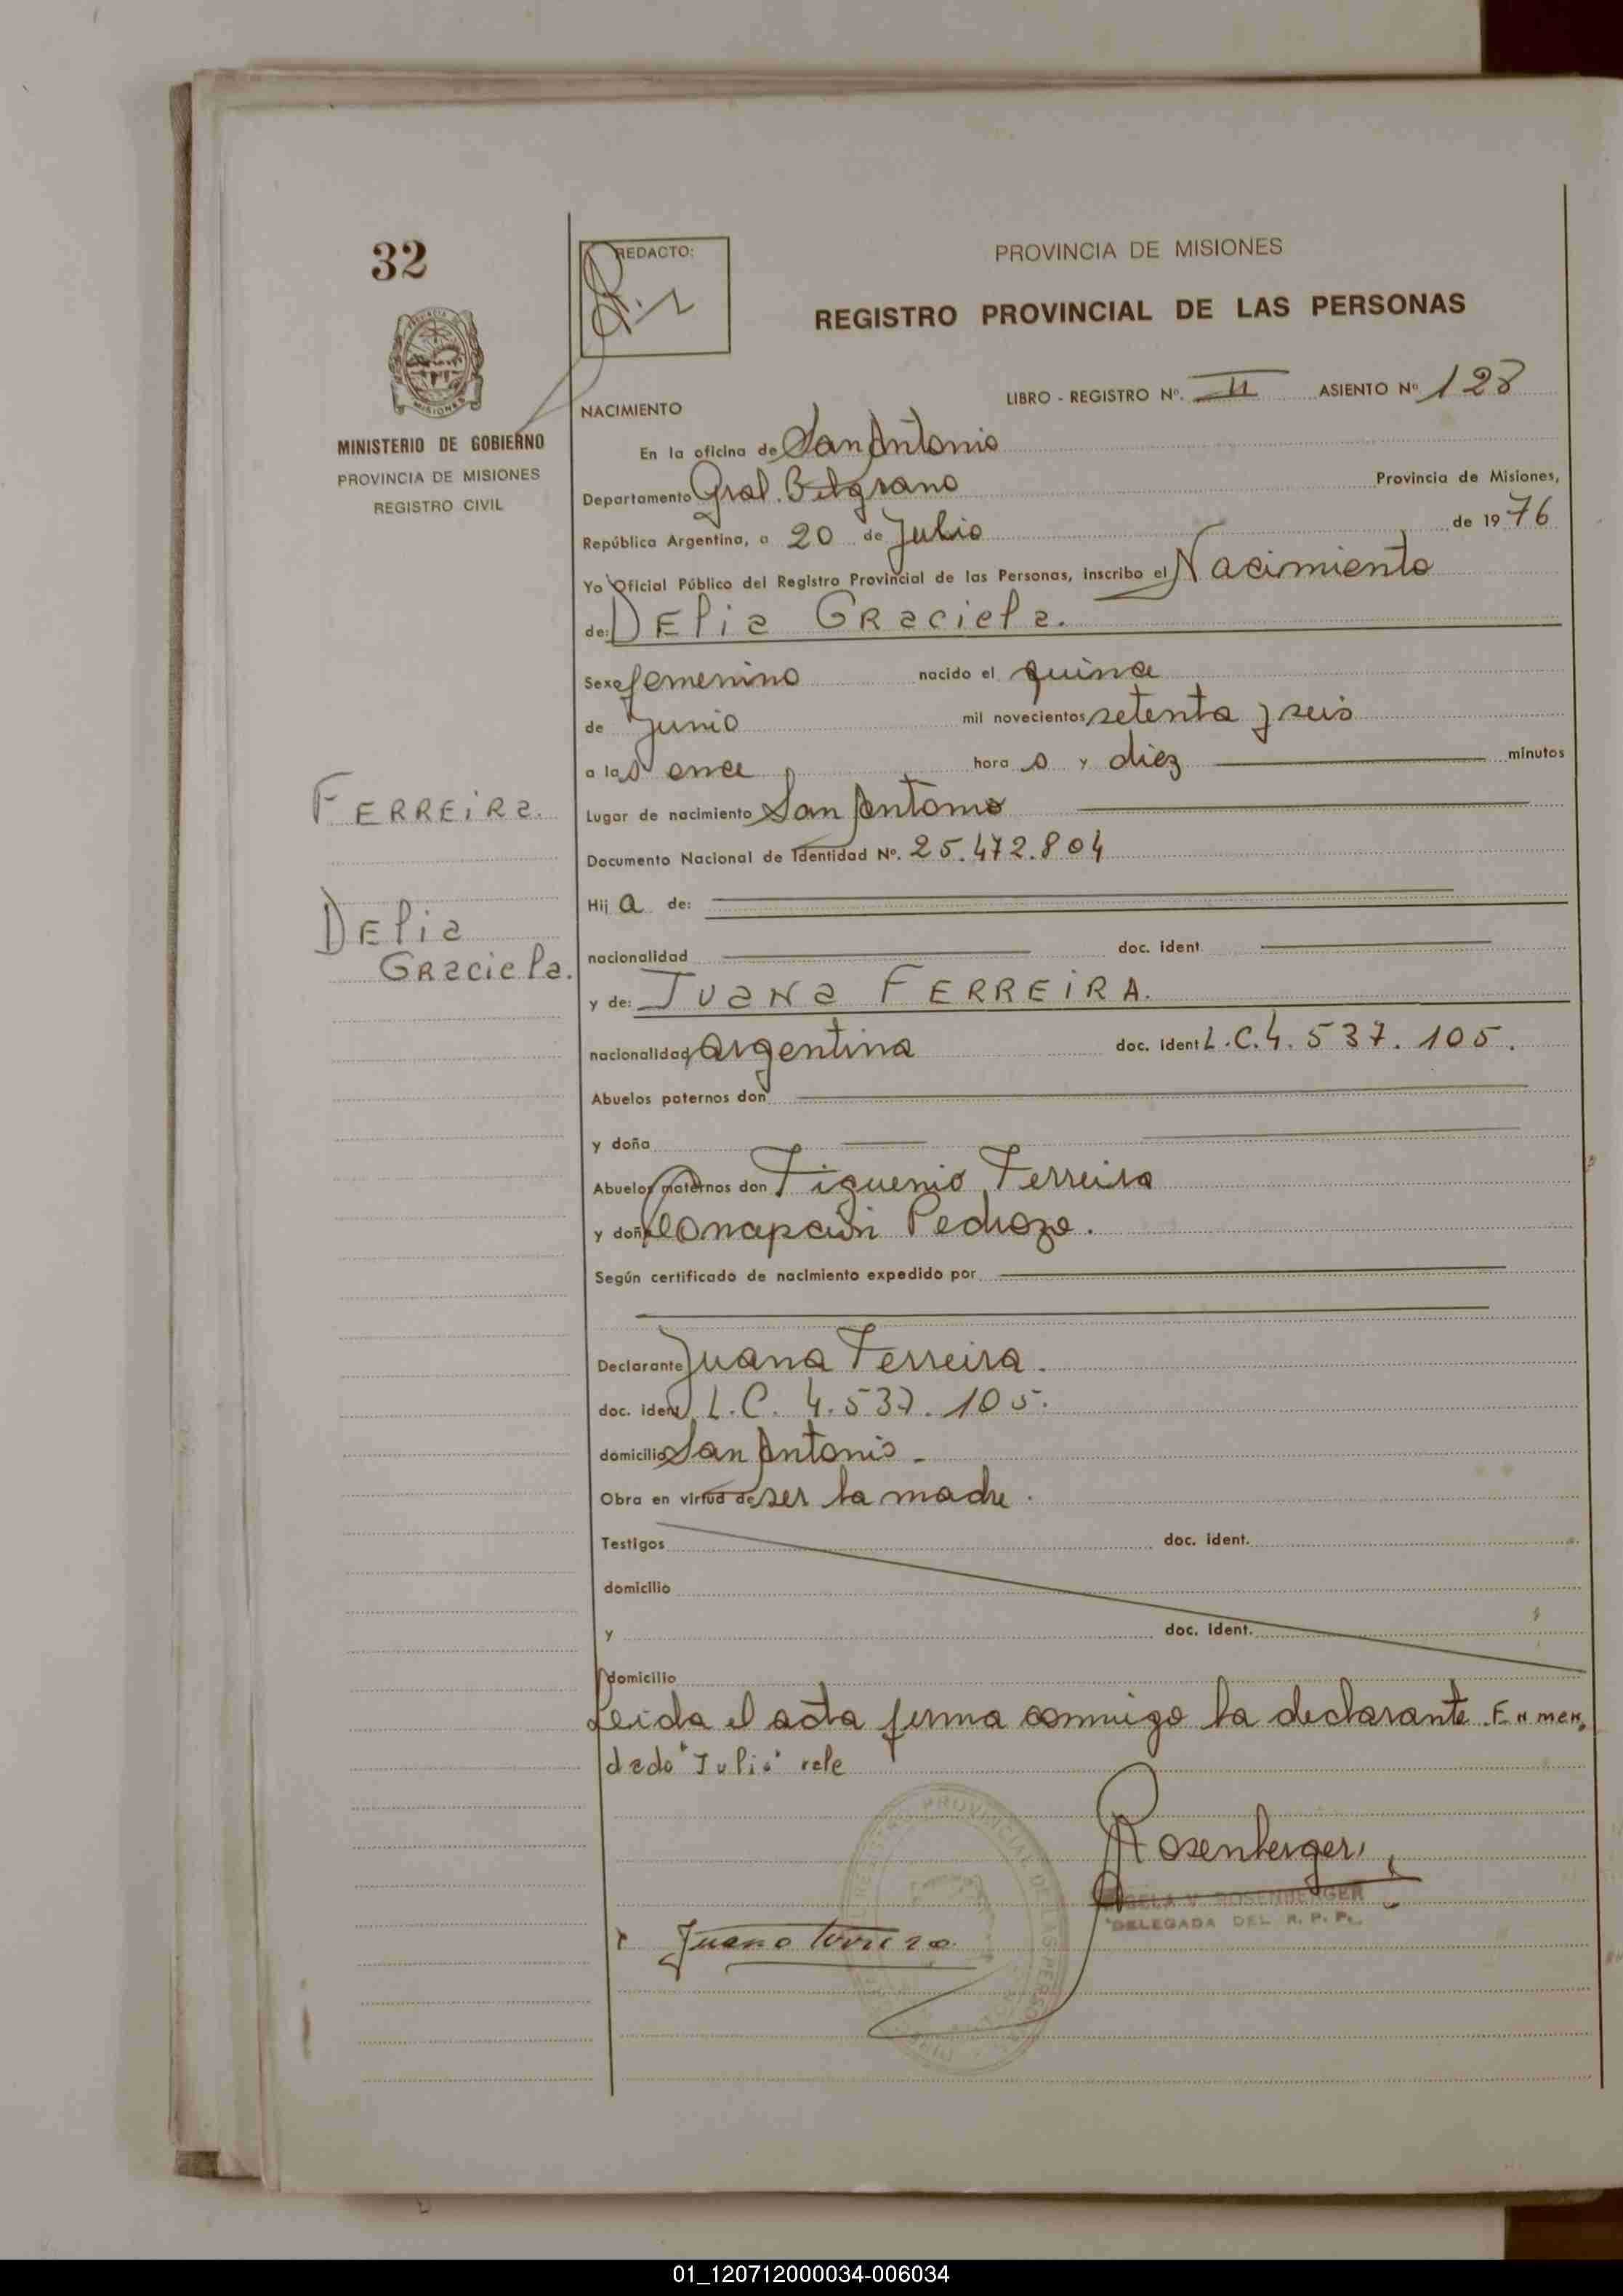 32
REDACTO:
PROVINCIA DE MISIONES
REGISTRO PROVINCIAL DE LAS PERSONAS
MISIONES
MINISTERIO DE GOBIERNO
PROVINCIA DE MISIONES
REGISTRO CIVIL
LIBRO - REGISTRO Nº. II ASIENTO Nº 128
NACIMIENTO
En la oficina de San Antonio
Departamento Gral. Belgrano Provincia de Misiones,
República Argentina, a 20 de Julio de 1976
Yo Oficial Público del Registro Provincial de las Personas, inscribo el Nacimiento
de: DElia GRaciela.
Sexo femenino nacido el quince
de Junio mil novecientos setenta y seis
a las once horas y diez minutos
FERREiRa.
Lugar de nacimiento San Antonio
Documento Nacional de Identidad Nº. 25.472.804
DElia
GRaciela.
Hija de:
nacionalidad doc. ident.
y de: JUaNa FERREiRA.
nacionalidad argentina doc. ident L.C. 4.537.105.
Abuelos paternos don
y doña
Abuelos maternos don Figuenio Ferreira
y doña Concepción Pedrozo.
Según certificado de nacimiento expedido por
Declarante Juana Ferreira.
doc. ident L.C. 4.537.105.
domicilio San Antonio.-
Obra en virtud de ser la madre.
Testigos doc. ident.
domicilio
y doc. ident.
domicilio
Leida el acta firma conmigo la declarante. Enmen,
dado "Julio" vale
Rosenberger
ROSENBERGER
DELEGADA DEL R.P.P.
REGISTRO PROVINCIAL DE LAS PERSONAS
Juana
01_120712000034-006034